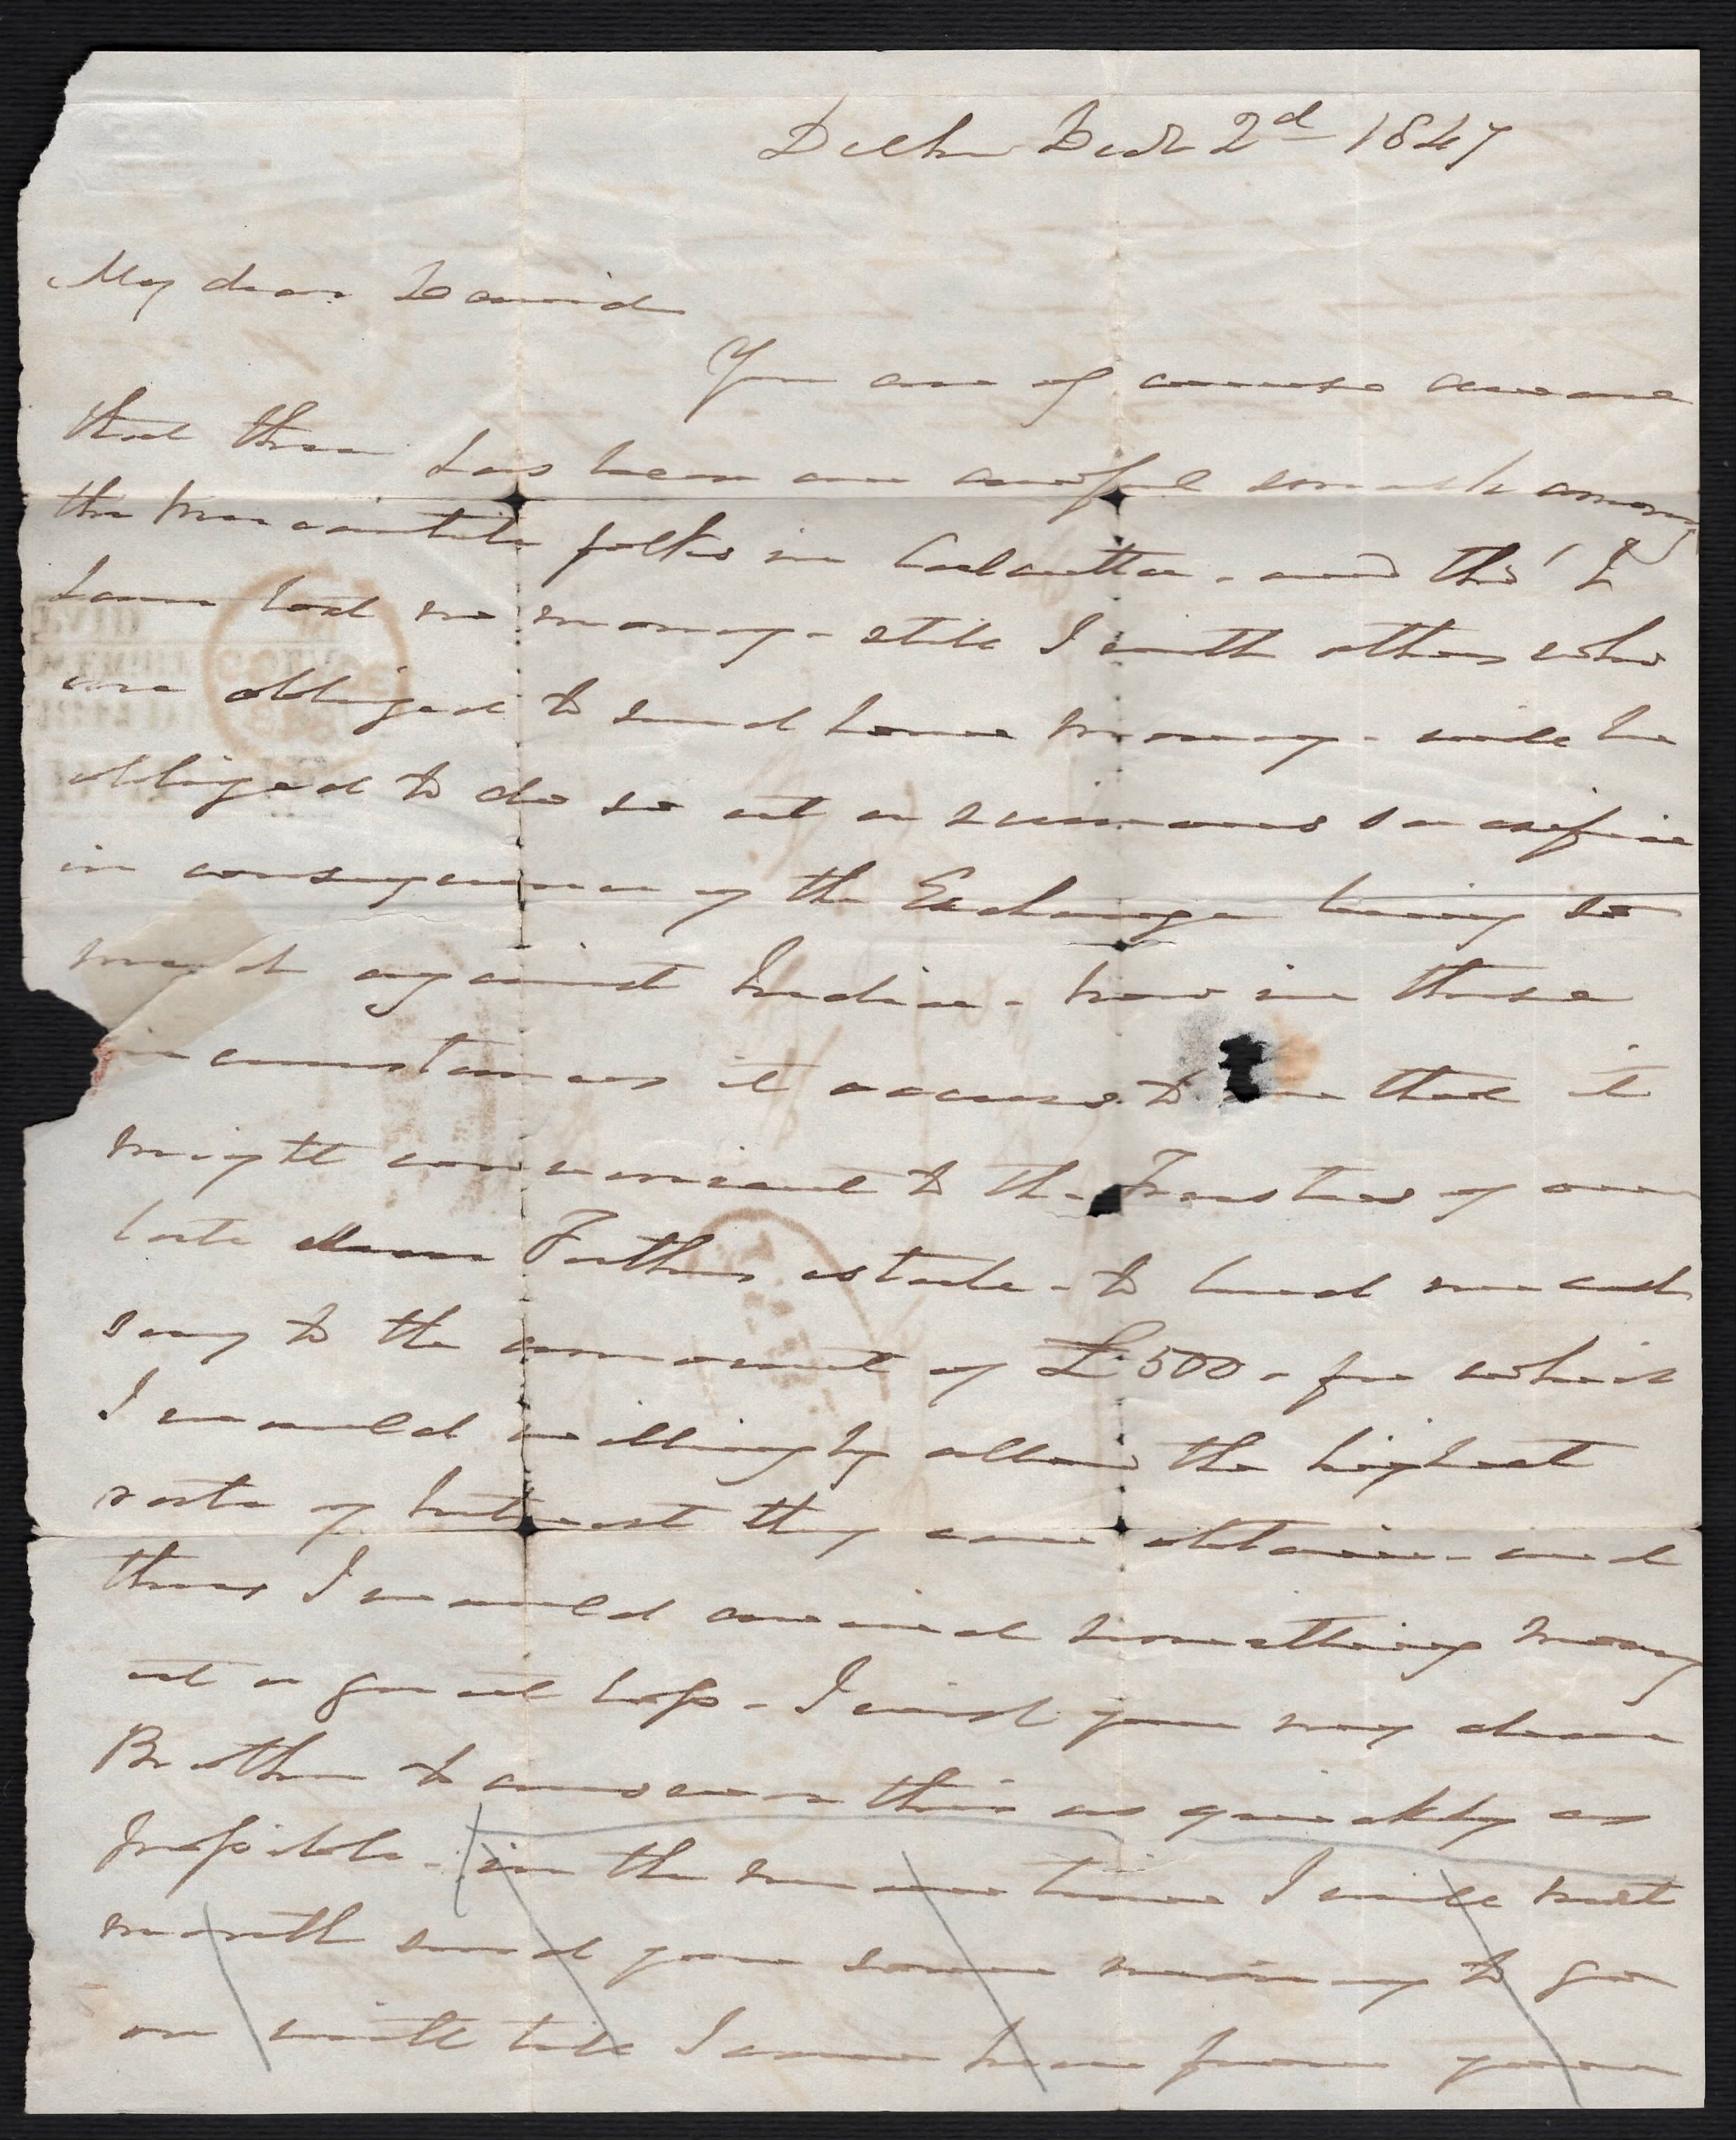 Delhi Decr 2d 1847
My dear David
You are of course aware
that there has been an awful smash among
the Mercantile folks in Calcutta - and tho' I
have lost no money - still I with others who
are obliged to send home money - will be
obliged to do so at a ruinous sacrifice
in consequence of the Exchange being so
much against India - now in these
circumstances it occurs to me that it
might convenient to the Trustees of our
late dear Fathers estate - to lend me cash
say to the amount of £500 - for which
I would willingly allow the highest
rate of Interest they can obtain - and
thus I would avoid something money
at a great loss - I wish you my dear
Brother to answer this as quickly as
possible - in the mean time I will next
month send you some money to go
on with till I can hear from you